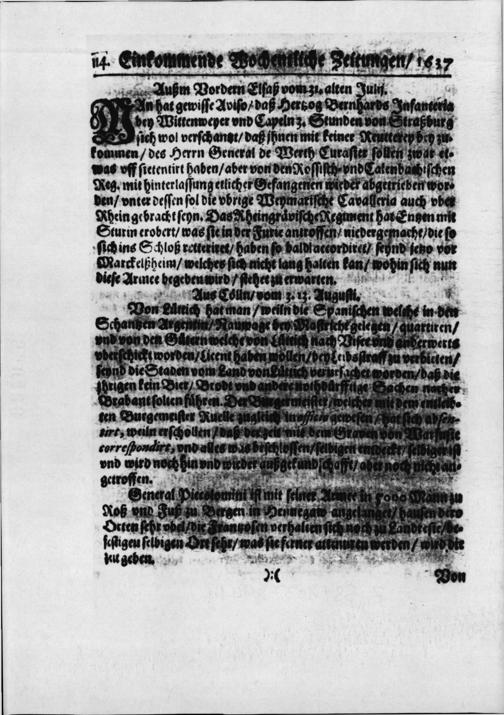 114. Einkommende Wochentliche Zeitungen/ 1637
Außm Vordern Elsaß vom 31. alten Julij.
MAn hat gewisse Aviso/ daß Hertzog Bernhards Infanteria
bey Wittenweyer vnd Capeln 3. Stunden von Straßburg
sich wol verschantzt/ daß jhnen mit keiner Reutterey bey zu-
kommen/ des Herrn General de Werth Curasier sollen zwar et-
was vff sie tentirt haben/ aber von den Rossisch- vnd Calenbachischen
Reg. mit hinterlassung etlicher Gefangenen wieder abgetrieben wor-
den/ vnter dessen sol die vbrige Weymarische Cavalleria auch vber
Rhein gebracht seyn. Das Rheingrävische Regiment hat Enzen mit
Sturm erobert/ was sie in der Furie antroffen/ niedergemacht/ die so
sich ins Schloß retteriret/ haben so bald accordiret/ seynd jetzo vor
Marckelßheim/ welches sich nicht lang halten kan/ wohin sich nun
diese Armee begeben wird/ stehet zu erwarten.
Aus Cölln/ vom 3. 13. Augusti.
Von Lüttich hat man/ weiln die Spanischen welche in den
Schantzen Argentin/ Navvage bey Mastricht gelegen/ quartiren/
vnd von den Gütern welche von Lüttich nach Viset vnd anderwerts
vberschickt worden/ Licent haben wöllen/ bey Leibsstraff zu verbieten/
seynd die Staden vom Land von Lüttich verursachet worden/ daß die
jhrigen kein Bier/ Brodt vnd andere nothdürfftige Sachen nacher
Brabant solten führen. Der Bürgermeister/ welcher mit dem entleib-
ten Burgemeister Ruelle zugleich in officio gewesen/ hat sich absen-
tirt, weiln erschollen/ daß der zeit mit dem Graven von Warfusee
correspondirt, vnd alles was beschlossen/ selbigen entdeckt/ selbiger ist
vnd wird noch hin vnd wieder außgekundschafft/ aber noch nicht an-
getroffen.
General Piccolomini ist mit seiner Armee in 5000 Mann zu
Roß vnd Fuß zu Bergen in Hennegaw angelanget/ hausen dero
Orten sehr vbel/ die Frantzosen verhalten sich noch zu Landresie/ be-
festigen selbigen Ort sehr/ was sie ferner attentiren werden/ wird die
zeit geben.
):( Von